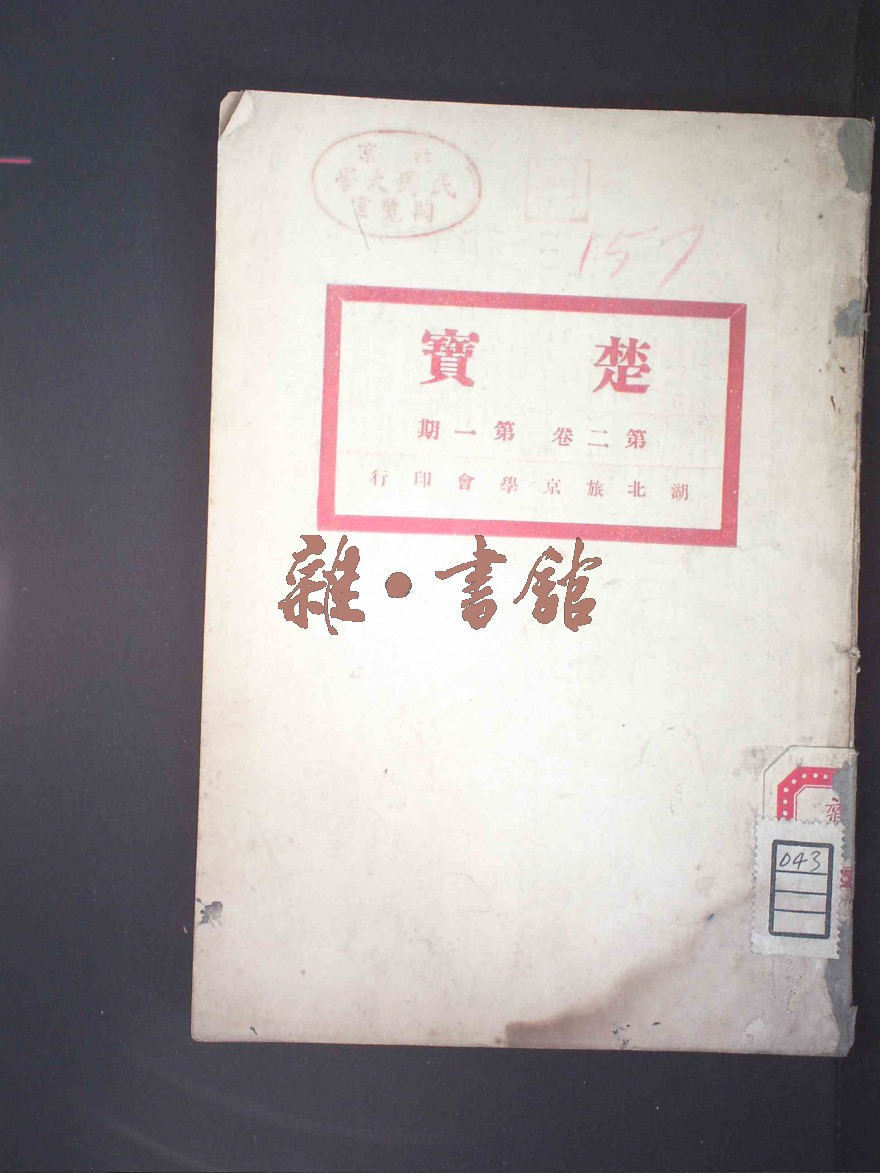 北京
民國大學
閱覽室
157
楚寶
第二卷 第一期
湖北旅京學會印行
雜·書館
043